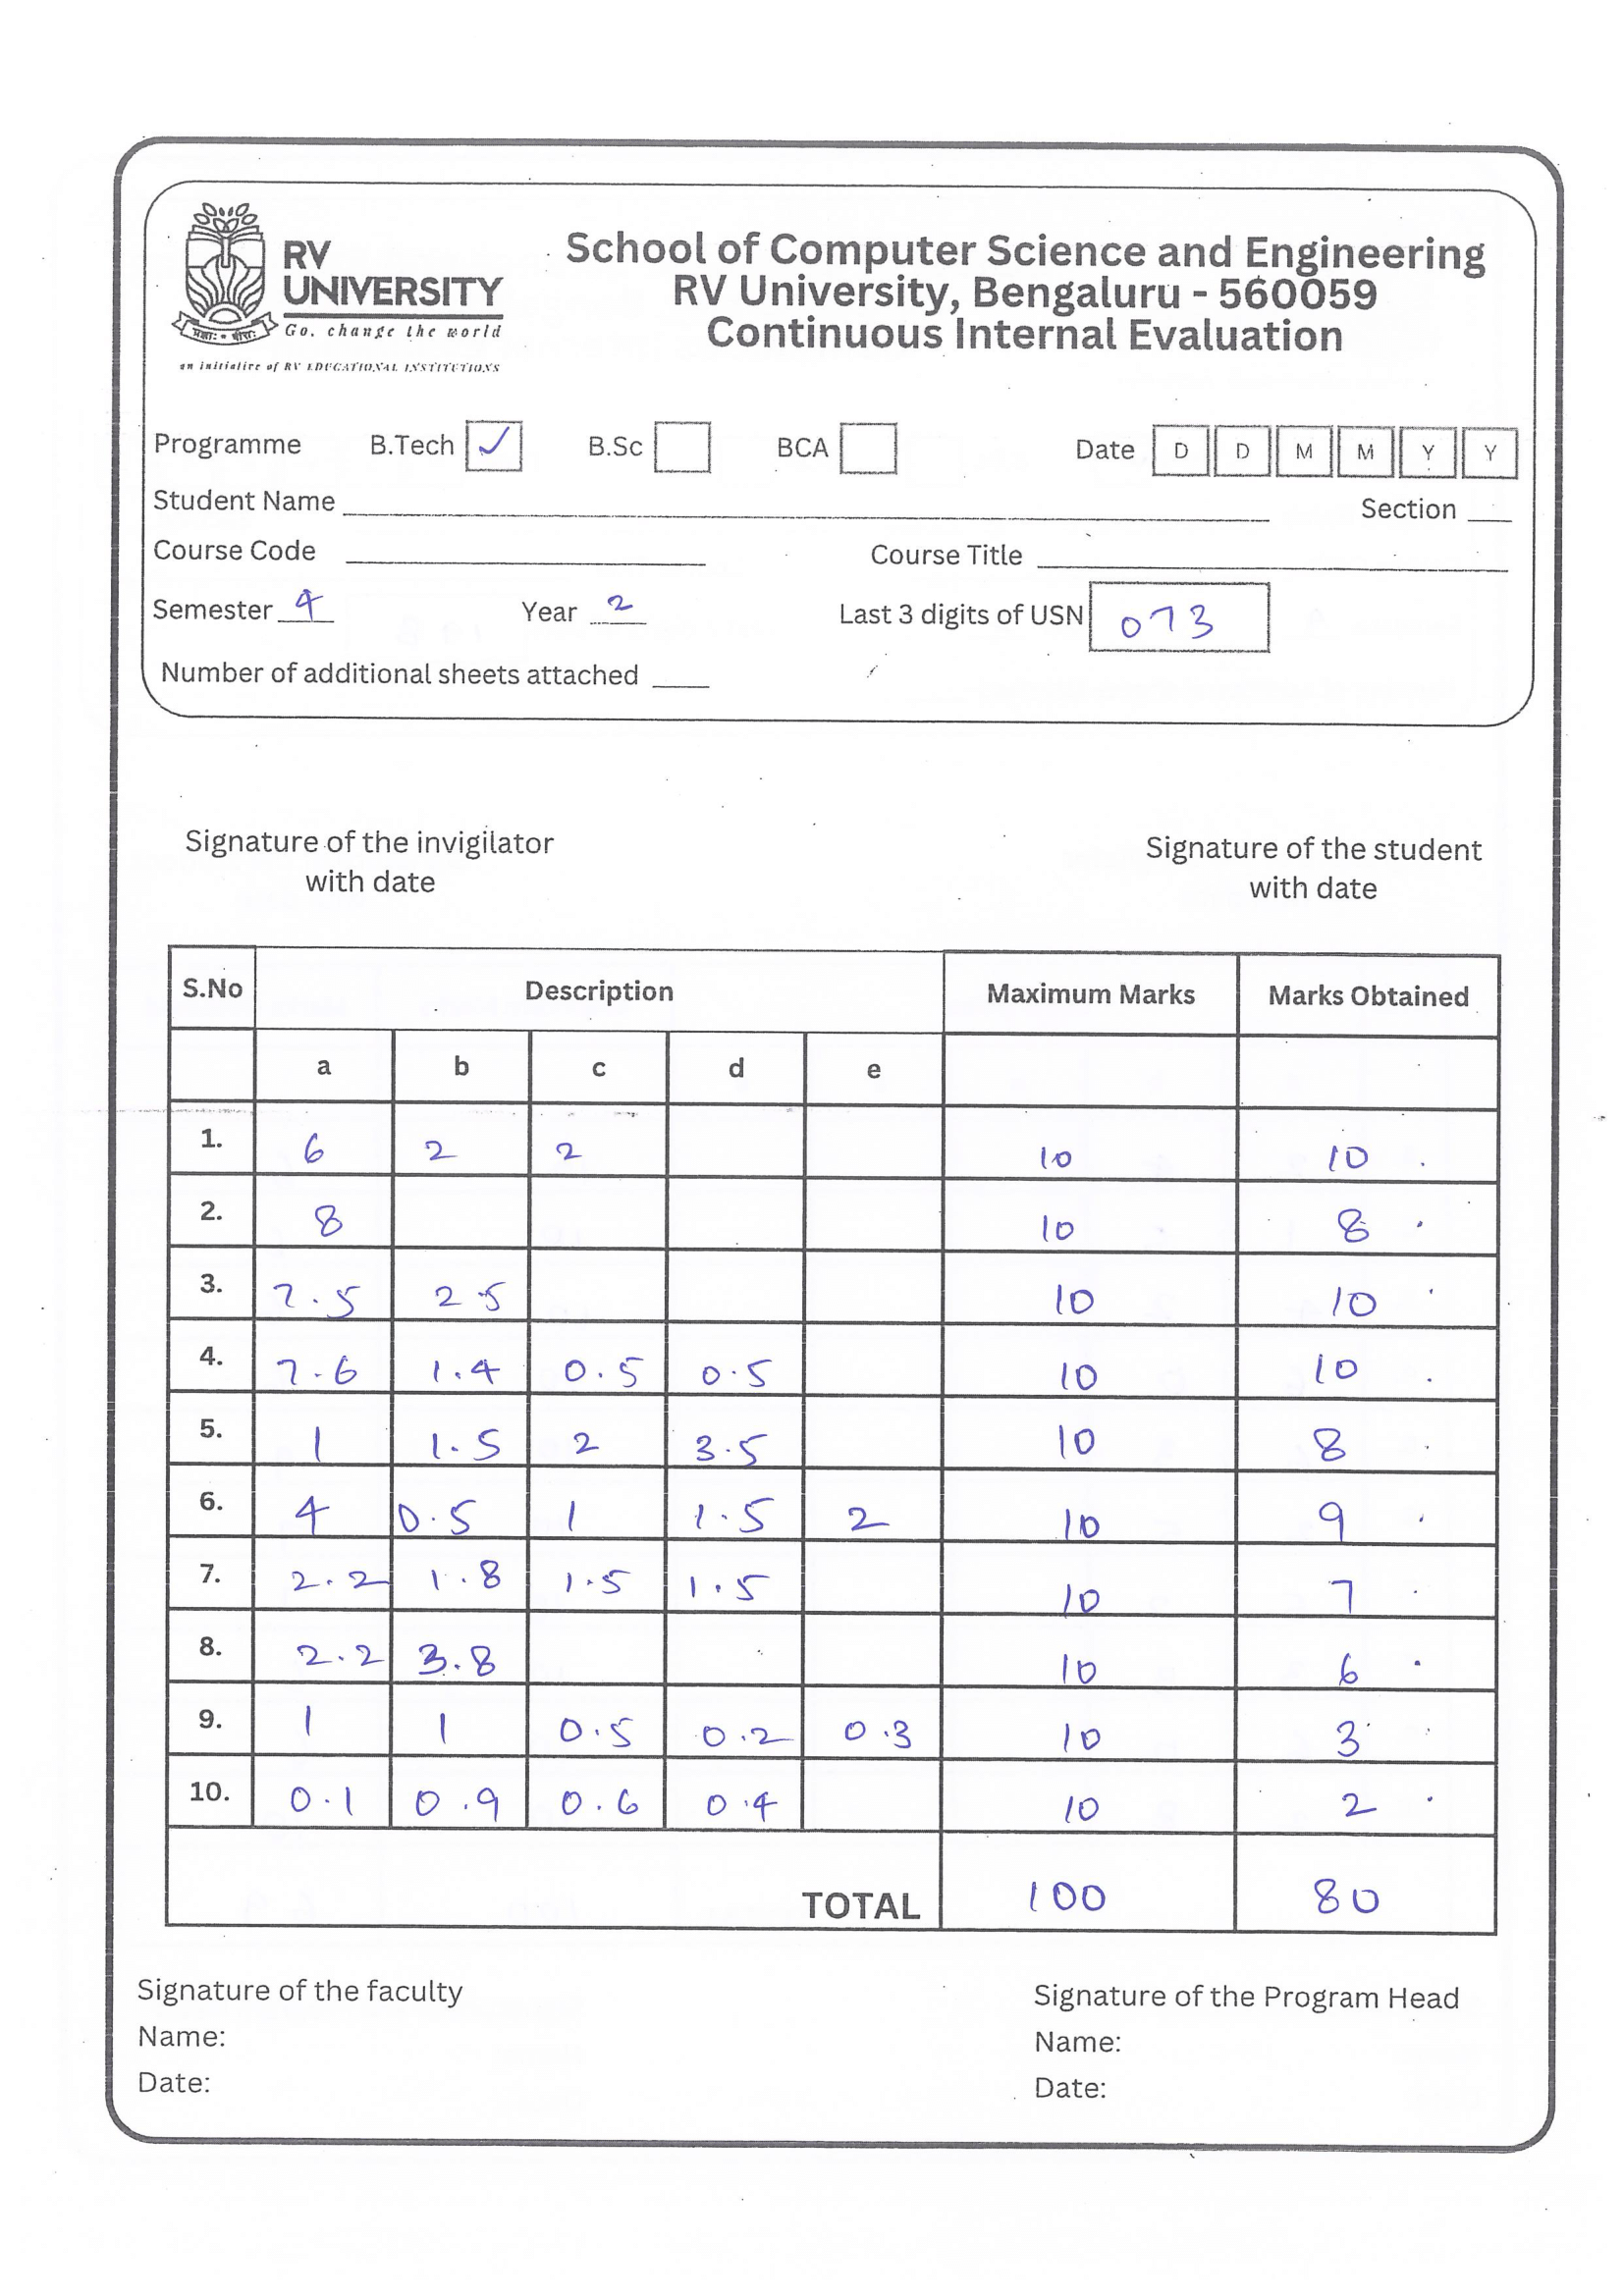 RV
UNIVERSITY
Go, change the world
an initiative of RV EDUCATIONAL INSTITUTIONS
School of Computer Science and Engineering
RV University, Bengaluru - 560059
Continuous Internal Evaluation
Programme B.Tech ✓ B.Sc BCA Date D D M M Y Y
Student Name Section
Course Code Course Title
Semester 4 Year 2 Last 3 digits of USN 073
Number of additional sheets attached
Signature of the invigilator Signature of the student
with date with date
S.No Description Maximum Marks Marks Obtained
a b c d e
1. 6 2 2 10 10
2. 8 10 8
3. 7.5 2.5 10 10
4. 7.6 1.4 0.5 0.5 10 10
5. 1 1.5 2 3.5 10 8
6. 4 0.5 1 1.5 2 10 9
7. 2.2 1.8 1.5 1.5 10 7
8. 2.2 3.8 10 6
9. 1 1 0.5 0.2 0.3 10 3
10. 0.1 0.9 0.6 0.4 10 2
TOTAL 100 80
Signature of the faculty Signature of the Program Head
Name: Name:
Date: Date: